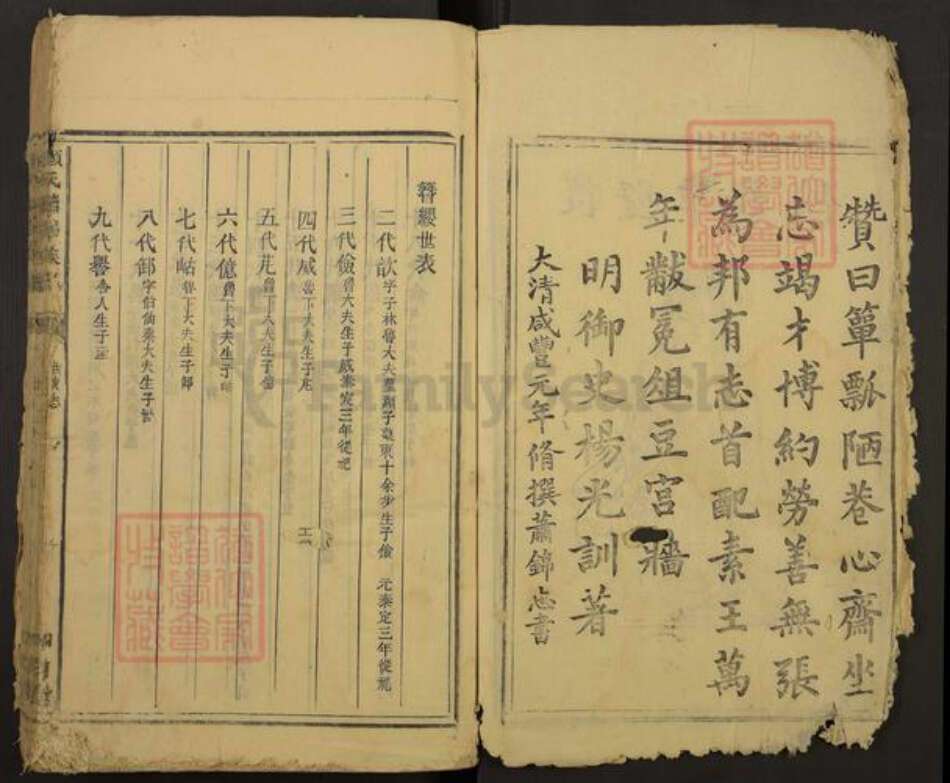 贊曰簞瓢陋巷心齋坐
忘竭才博約勞善無張
為邦有志首配素王萬
年黻冕俎豆宮牆
明御史楊光訓著
大清咸豐元年脩撰蕭錦忠書
簪纓世表
二代歆字子林魯大夫墓顏子墓東十余步生子儉 元泰定三年從祀
三代儉魯大夫生子威泰定三年從祀
四代威魯下大夫生子芃
五代芃魯下大夫生子億
六代億魯下大夫生子岵
七代岵魯下大夫生子卸
八代卸字伯仙秦大夫生子譽
九代譽秦人生子
FamilySearch